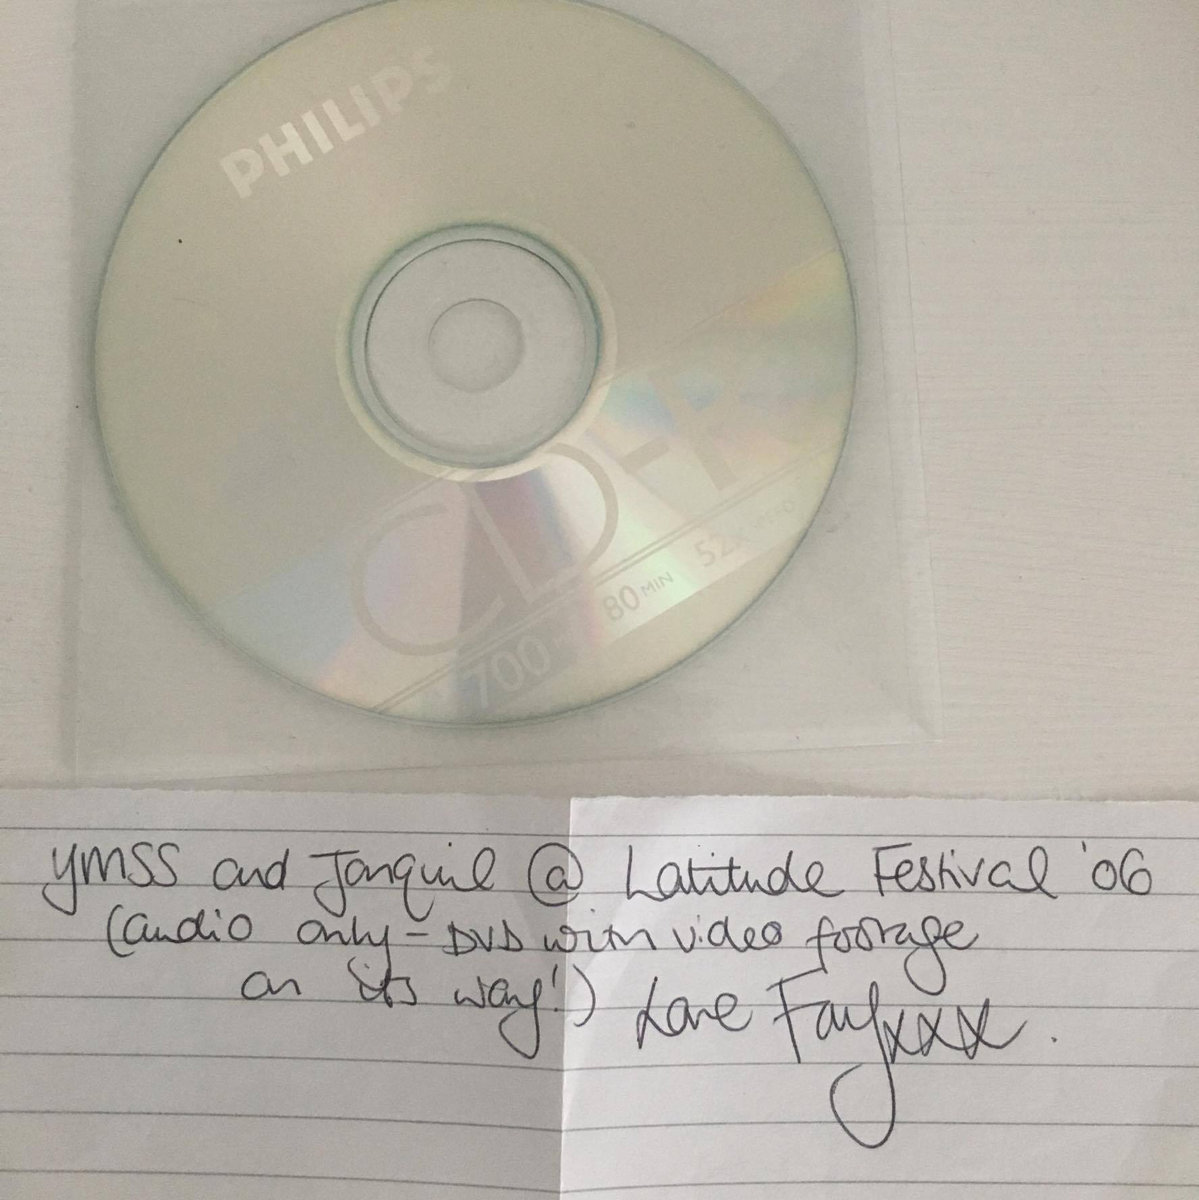 PHILIPS
CD-R
700 80 MIN 52X SPEED
YMSS and Jonquil @ Latitude Festival '06
(audio only - DVD with video footage
on its way!) Love Fay xxx.